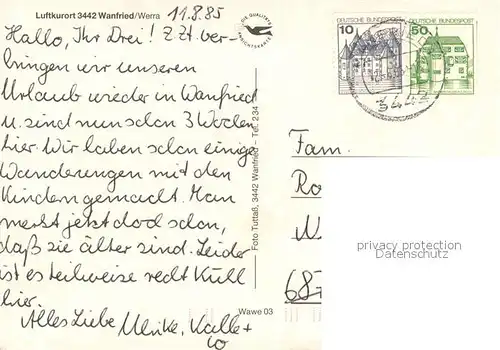 Luftkurort 3442 Wanfried/Werra
11.8.85
Hallo, Ihr Drei! Z.Zt. ver-
bringen wir unseren
Urlaub wieder in Wanfried
u. sind nun schon 3 Wochen
hier. Wir haben schon einige
Wanderungen mit den
Kindern gemacht. Man
merkt jetzt doch schon,
daß sie älter sind. Leider
ist es teilweise recht kühl
hier.
Alles Liebe Ulrike, Kalle +
Co
Foto Tuttaß, 3442 Wanfried – Tel. 234
Wawe 03
DIE QUALITÄTS
ANSICHTSKARTE
10
DEUTSCHE BUNDESPOST
50
DEUTSCHE BUNDESPOST
3442
Fam.
Ro
68
privacy protection
Datenschutz